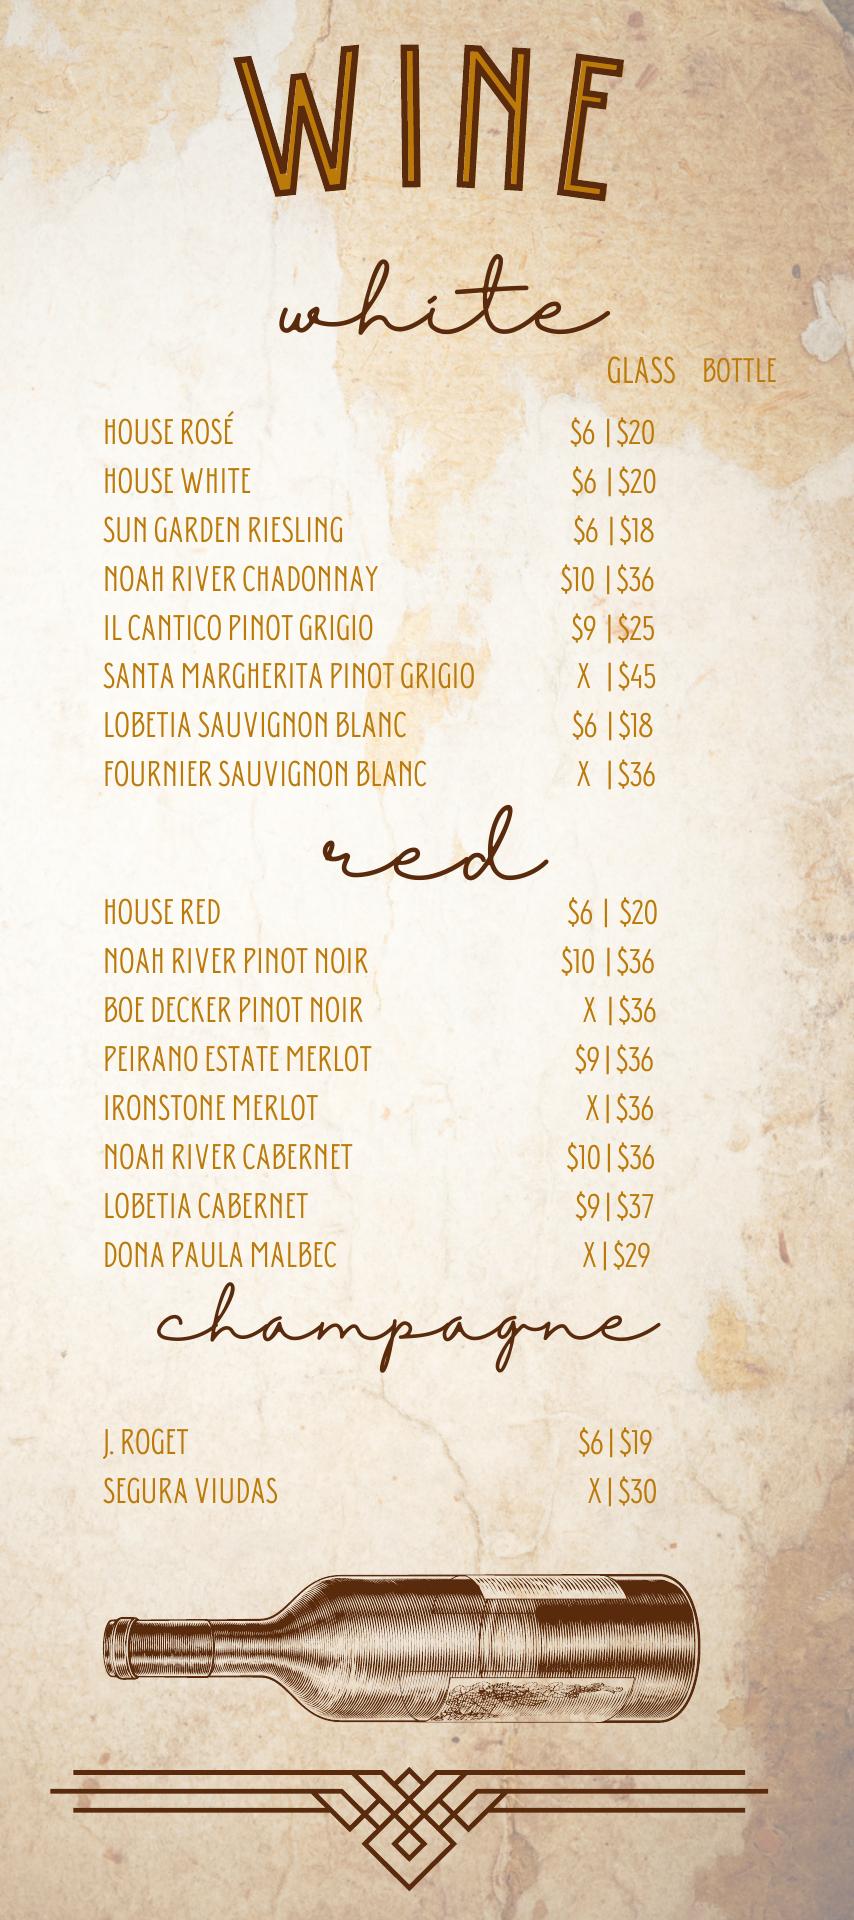 WINE
white
GLASS BOTTLE
HOUSE ROSÉ $6 | $20
HOUSE WHITE $6 | $20
SUN GARDEN RIESLING $6 | $18
NOAH RIVER CHADONNAY $10 | $36
IL CANTICO PINOT GRIGIO $9 | $25
SANTA MARGHERITA PINOT GRIGIO X | $45
LOBETIA SAUVIGNON BLANC $6 | $18
FOURNIER SAUVIGNON BLANC X | $36
red
HOUSE RED $6 | $20
NOAH RIVER PINOT NOIR $10 | $36
BOE DECKER PINOT NOIR X | $36
PEIRANO ESTATE MERLOT $9 | $36
IRONSTONE MERLOT X | $36
NOAH RIVER CABERNET $10 | $36
LOBETIA CABERNET $9 | $37
DONA PAULA MALBEC X | $29
champagne
J. ROGET $6 | $19
SEGURA VIUDAS X | $30